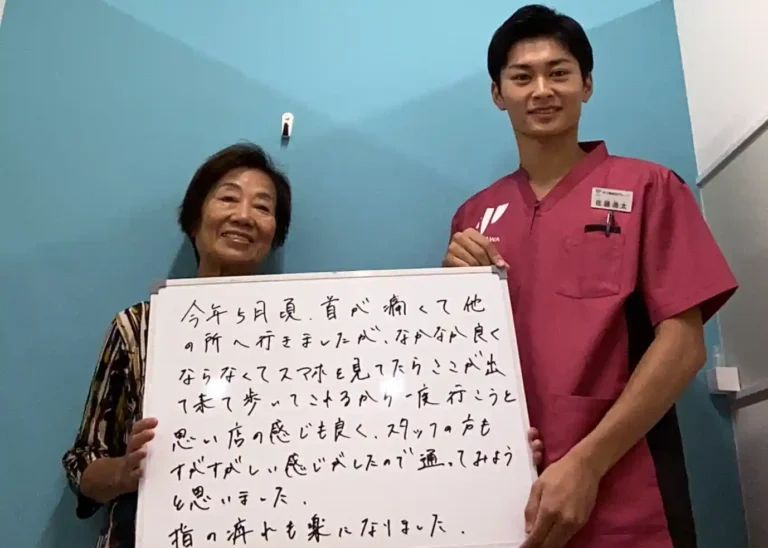 佐藤
今年5月頃、首が痛くて他
の所へ行きましたが、なかなか良く
ならなくてスマホを見てたらここが出
て来て歩いてこれるから一度行こうと
思い店の感じも良く、スタッフの方も
すがすがしい感じがしたので通ってみよう
と思いました。
指の痺れも楽になりました。